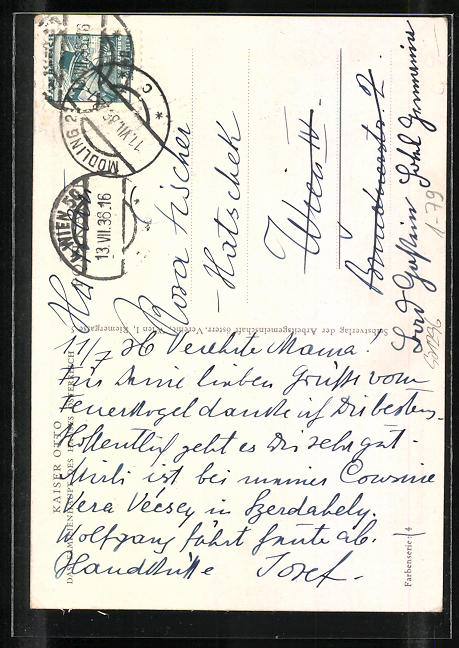 MÖDLING 2
11.VII.36
WIEN 50
13.VII.36.16
Rosa Fischer
-Hatschek
Wien IV.
Bad Gastein Hotel Germania
1-79
Selbstverlag der Arbeitsgemeinschaft österr. Vereine, Wien I, Riemergasse
KAISER OTTO
DAS FAMILIENHAUPT DES HAUSES ÖSTERREICH
Farbenserie: 4
11/7 36 Verehrte Mama!
Für Deine lieben Grüße vom
Feuerkogel danke ich Dir bestens.
Hoffentlich geht es Dir sehr gut.
Mirli ist bei meiner Cousine
Vera Vécsey in Szerdahely.
Wolfgang fährt heute ab.
Handküsse Josef.